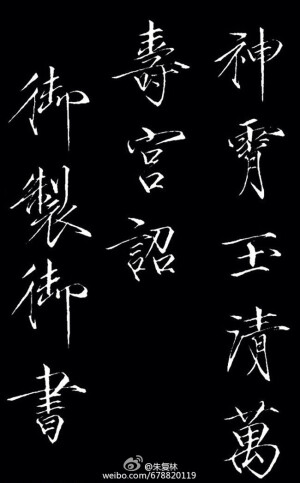 神霄玉清萬
壽宮詔
御製御書
@朱复林
weibo.com/678820119